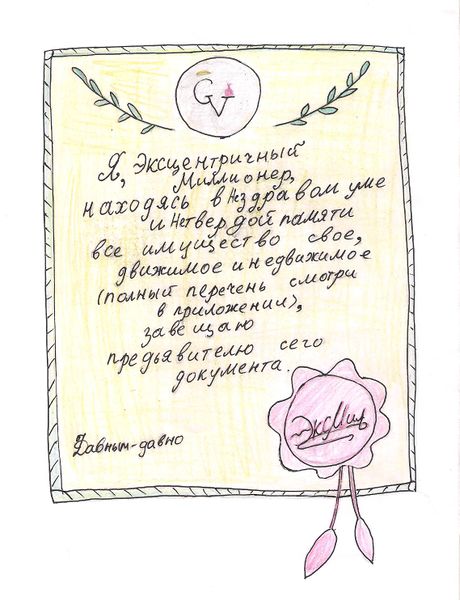 GV
Я, Эксцентричный
Миллионер,
находясь в Нездравом уме
и Нетвердой памяти
все имущество свое,
движимое и недвижимое
(полный перечень смотри
в приложении),
завещаю
предъявителю сего
документа.
ЭксМил
Давным-давно